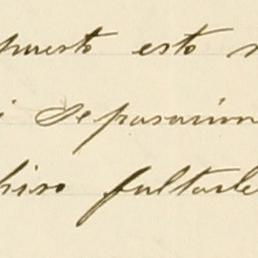 puesto esto
separacion
hiso faltarle